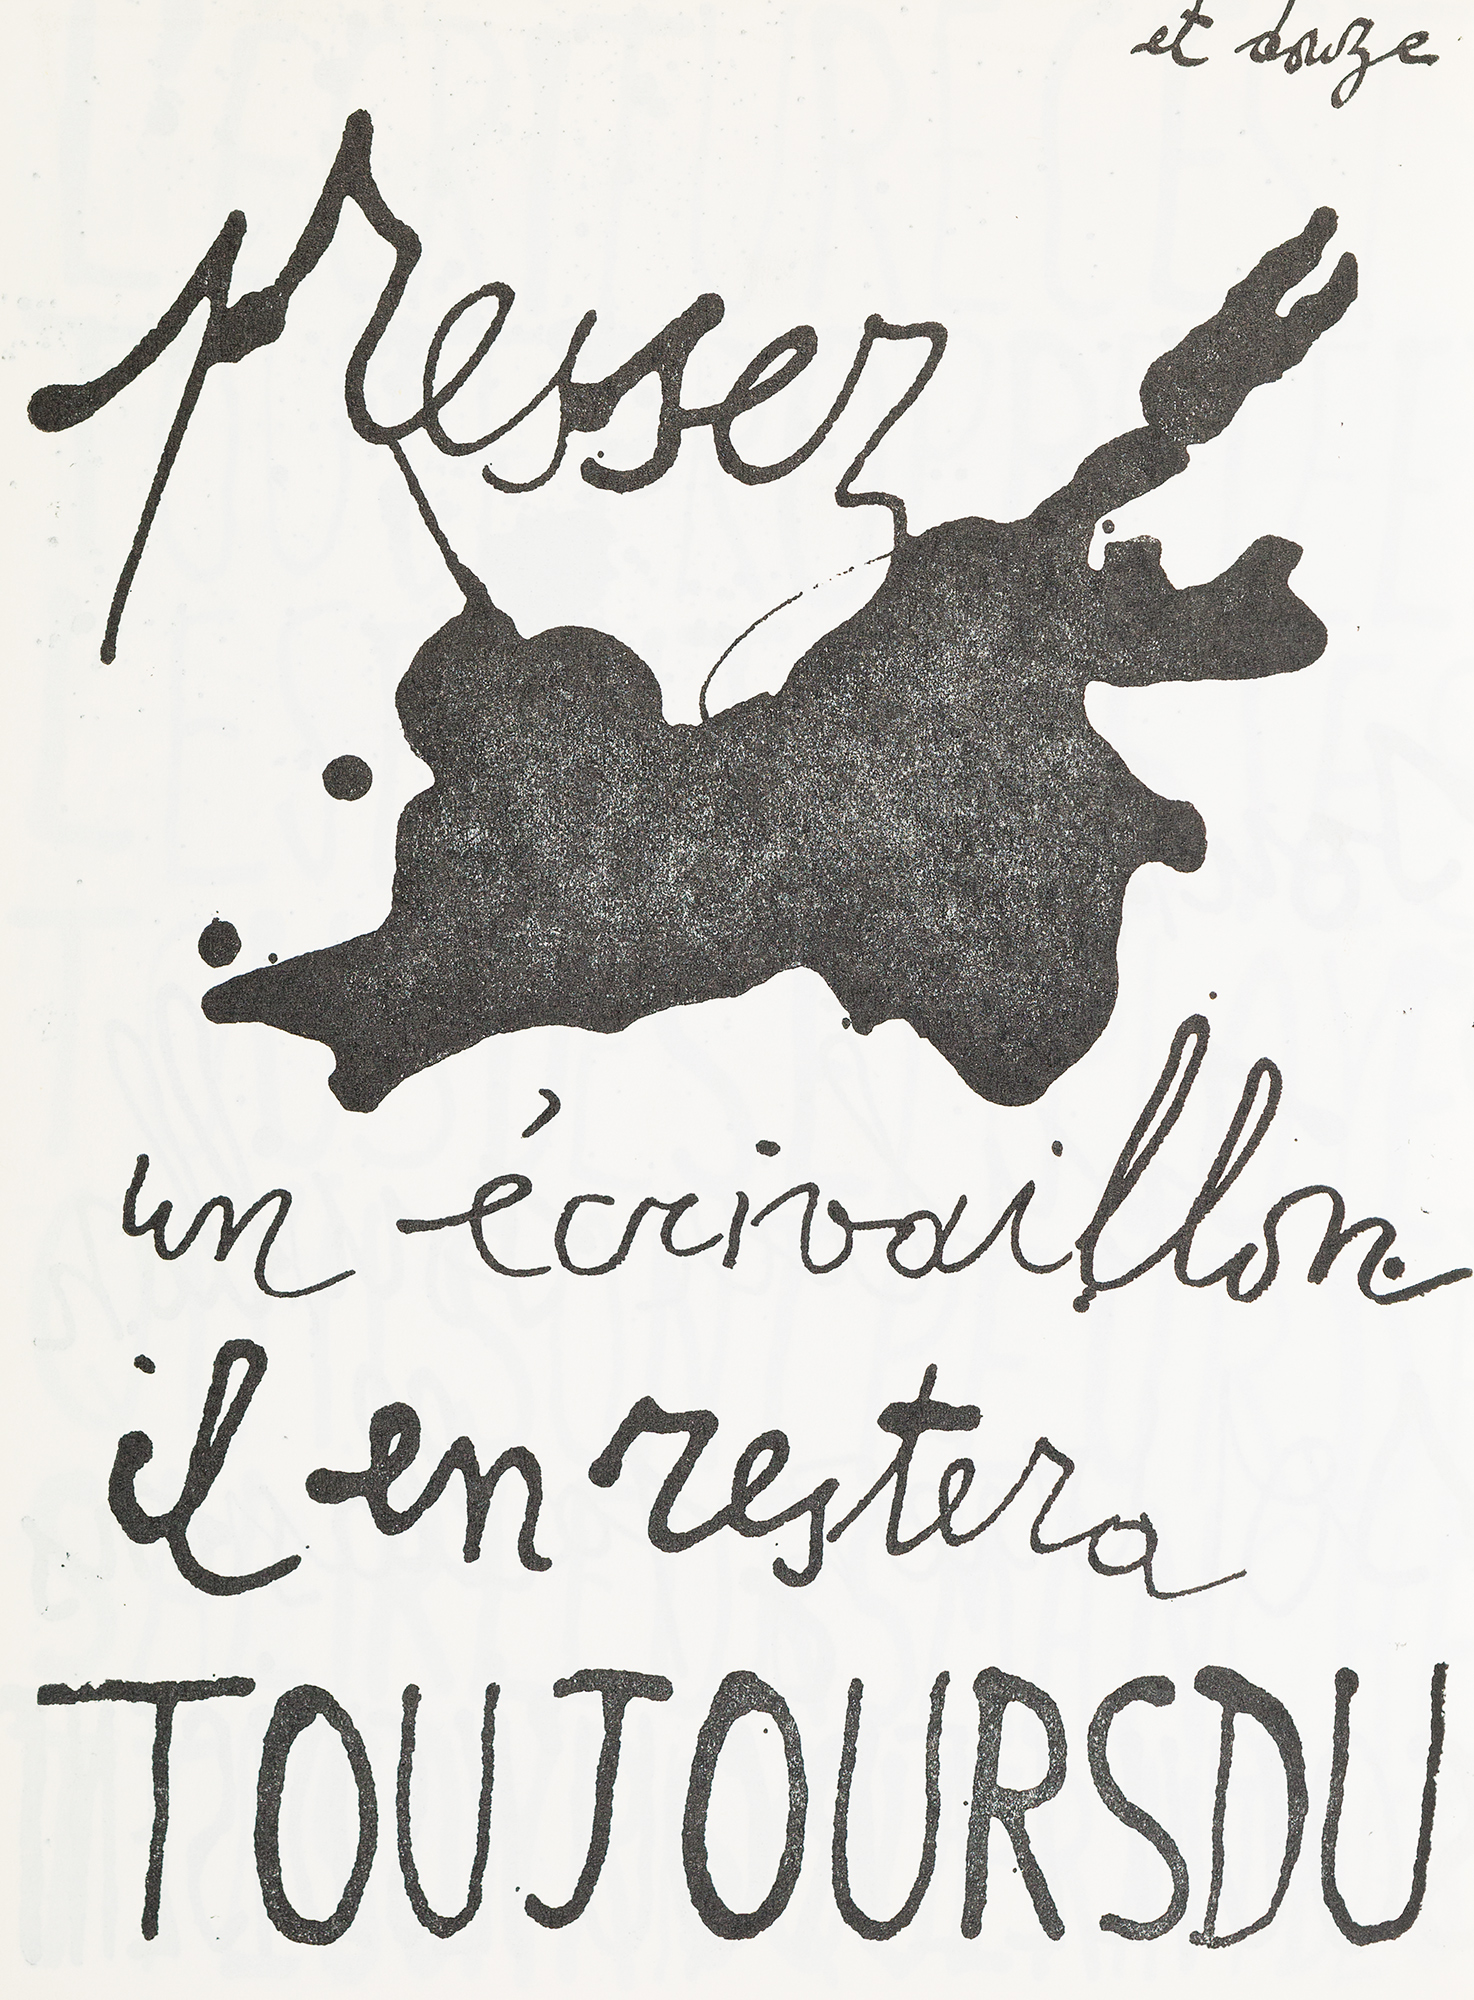 et douze
pressez
un écrivaillon
il en restera
TOUJOURSDU